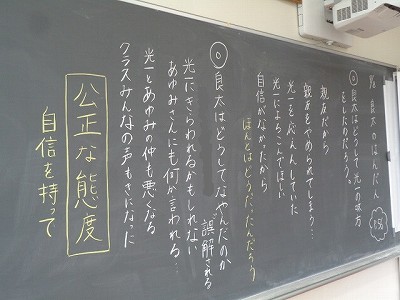 良太のはんだん
◎良太はどうして光一の味方
をしたのだろう。
親友だから
親友をやめられてしまう…
光一を応えんしていた
光一によろこんでほしい
自信がなかったから
ほんとはどうだったんだろう
◎良太はどうしてなやんだのか
誤解される
光一にきらわれるかもしれない
あゆみさんにも何か言われる…
光一とあゆみの仲も悪くなる
クラスみんなの声もきになった
公正な態度
自信を持って